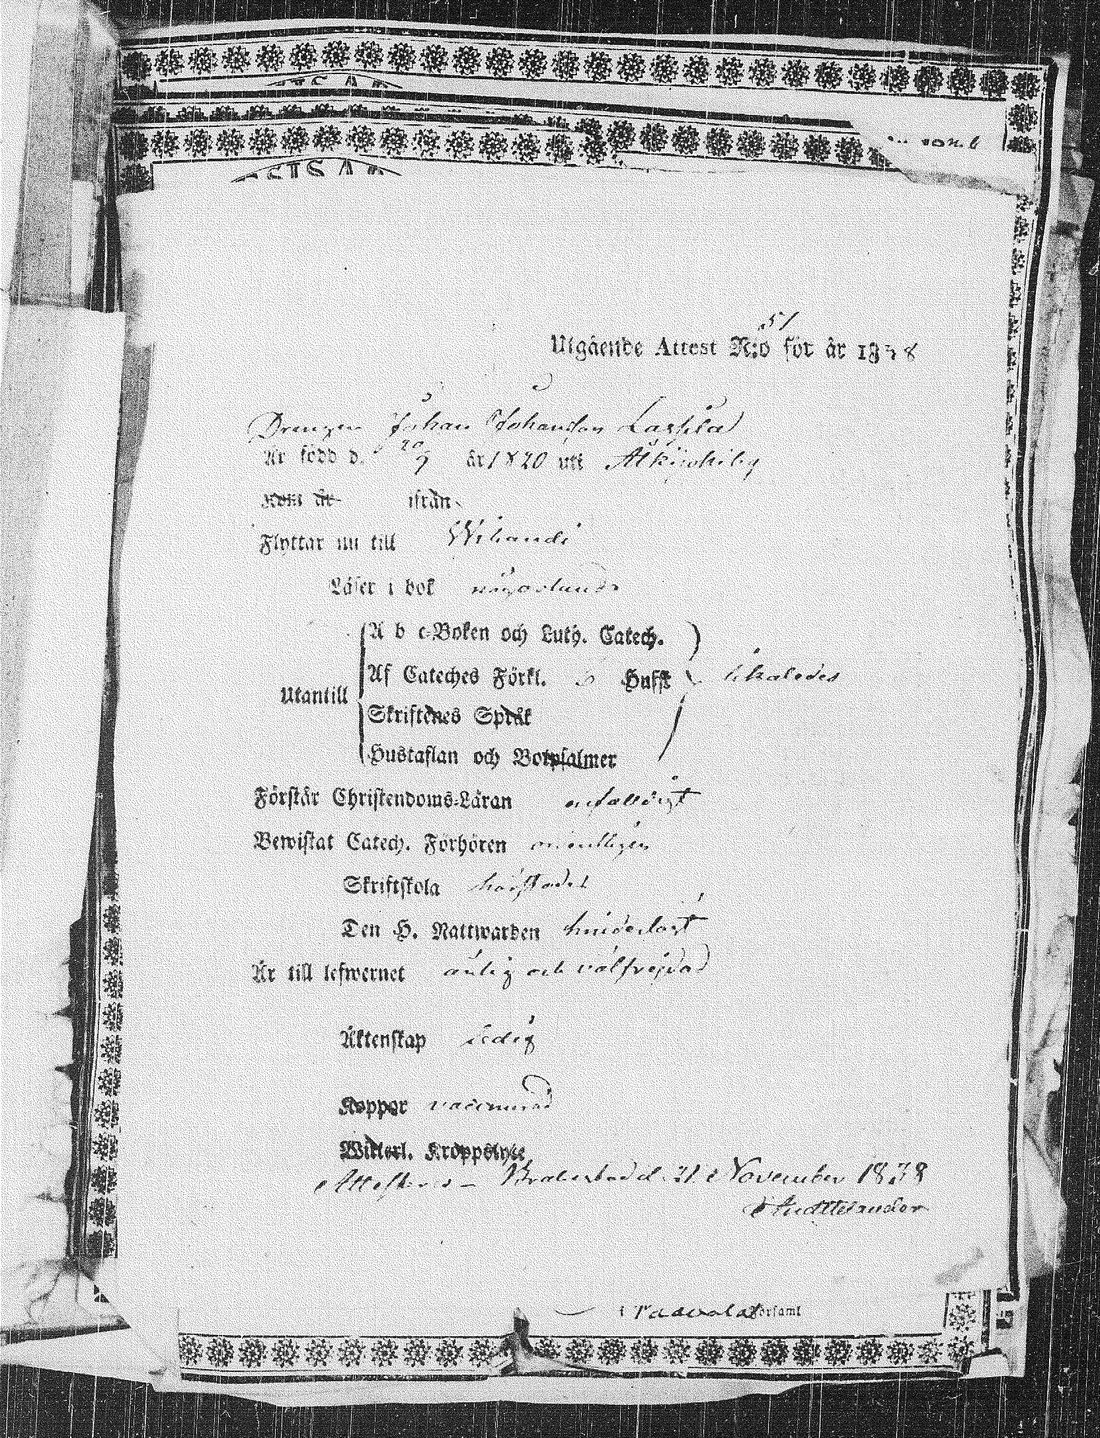 51
Utgående Attest N:o för år 1838
Drengen Johan Johansson Lassila
Är född d. 20/9 år 1820 uti
Kom år ifrån
Flyttar nu till Wihandi
Läser i bok någorlunda
A b c-Boken och Luth. Catech.
Af Cateches Förkl. Hufst likaledes
Utantill
Skriftenes Språk
Hustaflan och Botpsalmer
Förstår Christendoms-Läran enfalldigt
Bewistat Catech. Förhören ordentligen
Skriftskola
Den H. Nattwarden hinderlöst
Är till lefwernet ärlig och välfrejdad
Äktenskap ledig
Koppor vaccinerad
Witterl. Kroppslyte
Attesteras Brahestad d. 21 November 1838
i Paavola Församl